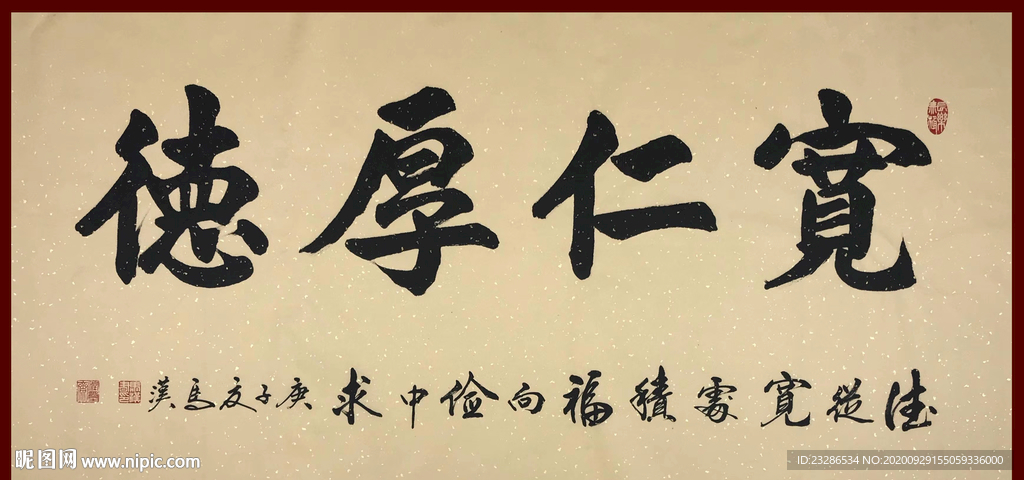 寬仁厚德
德從寬處積福向儉中求庚子友馬漢
昵图网 www.nipic.com
ID:23286534 NO:20200929155059336000